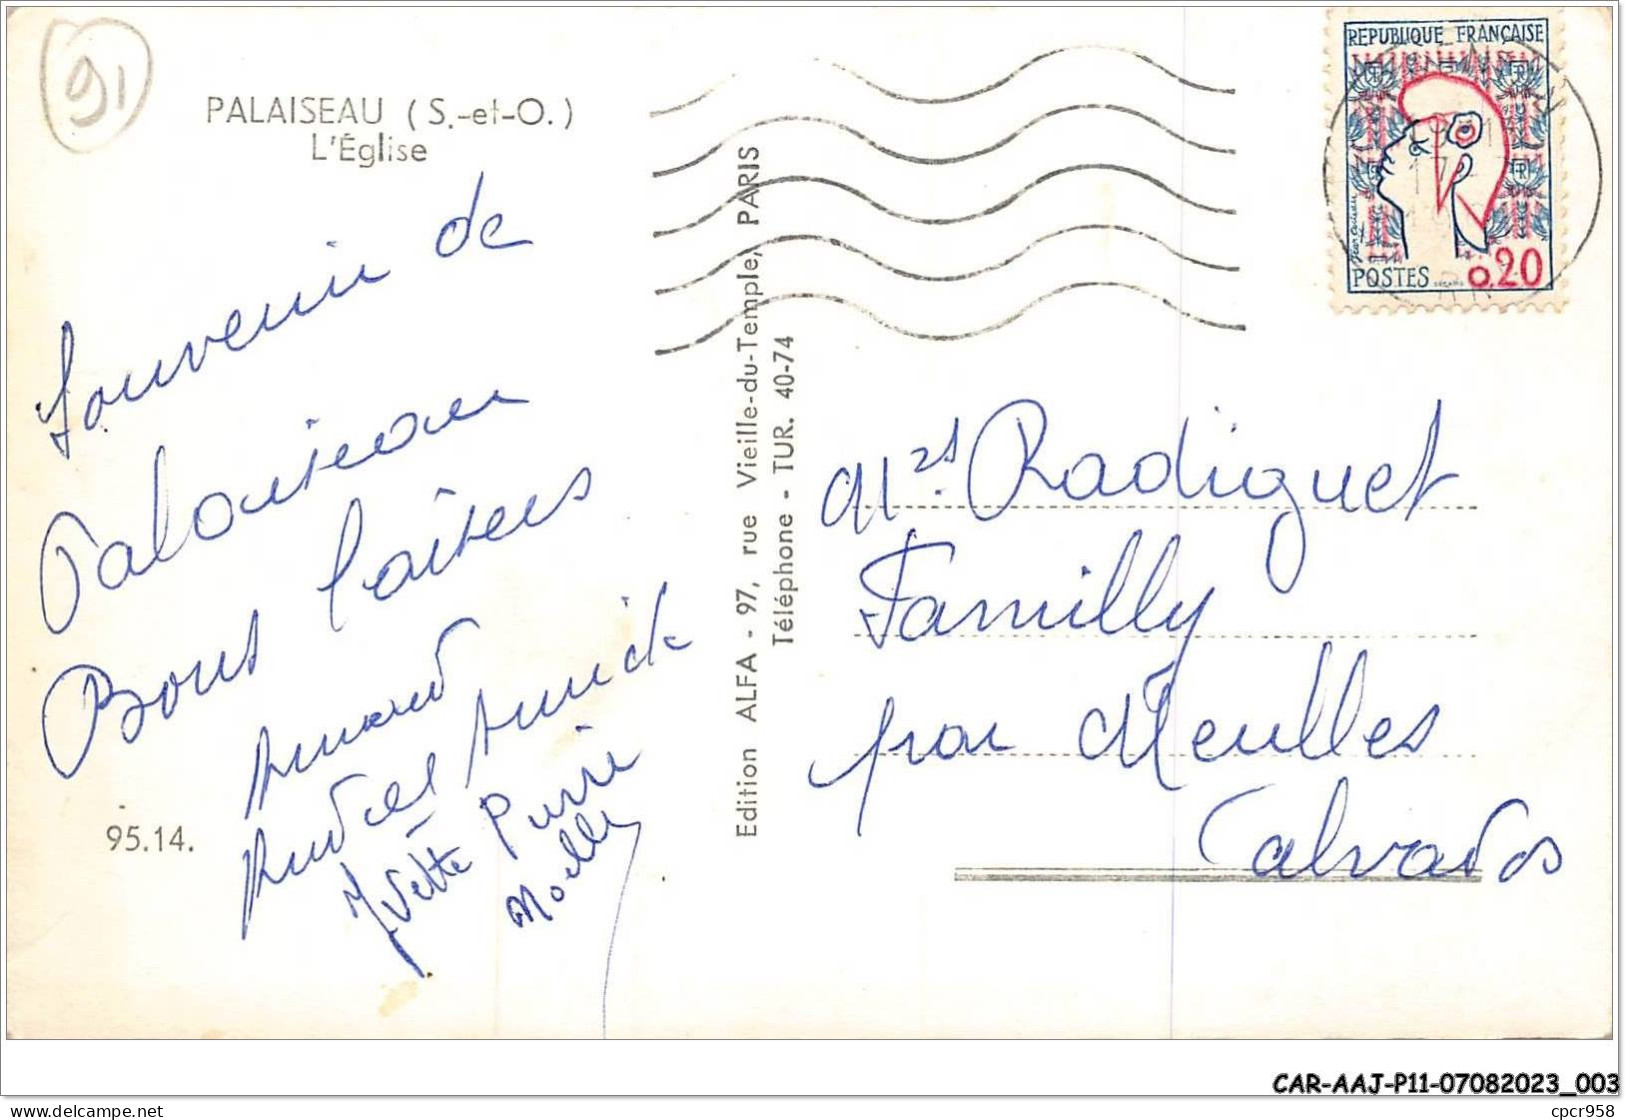 91
PALAISEAU (S.-et-O.)
L'Église
Souvenir de
Palaiseau
Bons baisers
Armand
Annick
Yvette Pierre
Noelle
95.14.
Edition ALFA - 97, rue Vieille-du-Temple, PARIS
Téléphone - TUR. 40-74
REPUBLIQUE FRANÇAISE
POSTES 0,20
Mrs. Radiguet
Familly
par Meulles
Calvados
CAR-AAJ-P11-07082023_003
delcampe.net
cpcr958